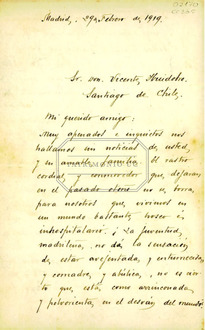 Madrid, 29 Febrero de, 1919.
Sr. don Vicente Huidobro,
Santiago de Chile,
Mi querido amigo:
Muy apenados e inquietos nos
hallamos sin noticias de, usted,
y su amable familia. El rastro
cordial, y conmovedor que, dejaron,
en el pasado otoño no se, borra,
para nosotros que, vivimos en
un mundo bastante, hosco e
inhospitalario. ¿ La juventud,
madrileña, no da la sensación
de estar avejentada, y entumecida
y, y atónica, - no es cier
to que, está, como arrinconada,
y polvorienta, en el desván del mundo